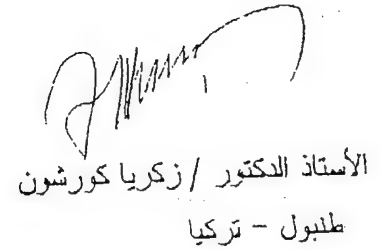 الأستاذ الدكتور / زكريا كورشون
طنبول - تركيا